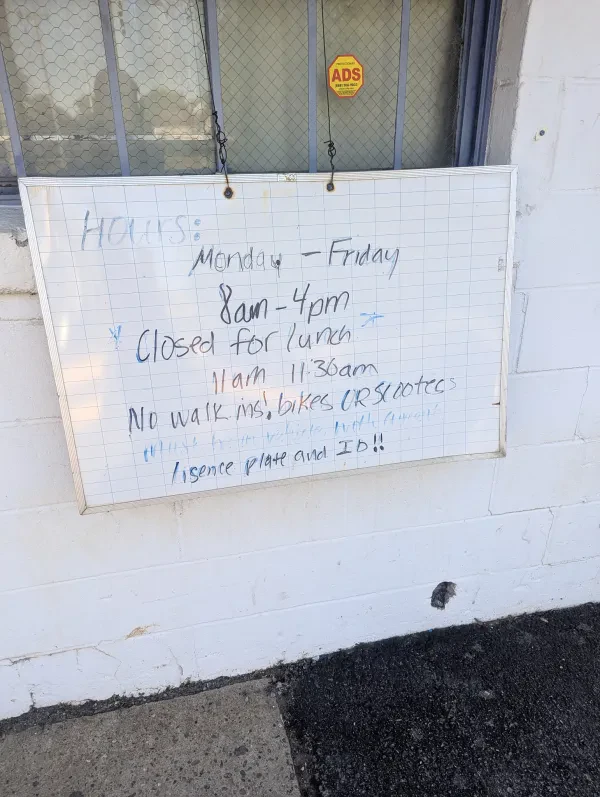 ADS
Hours:
Monday - Friday
8am - 4pm
* Closed for lunch *
11am 11:30am
No walk ins! bikes OR Scooters
Must have vehicle with
lisence plate and ID!!